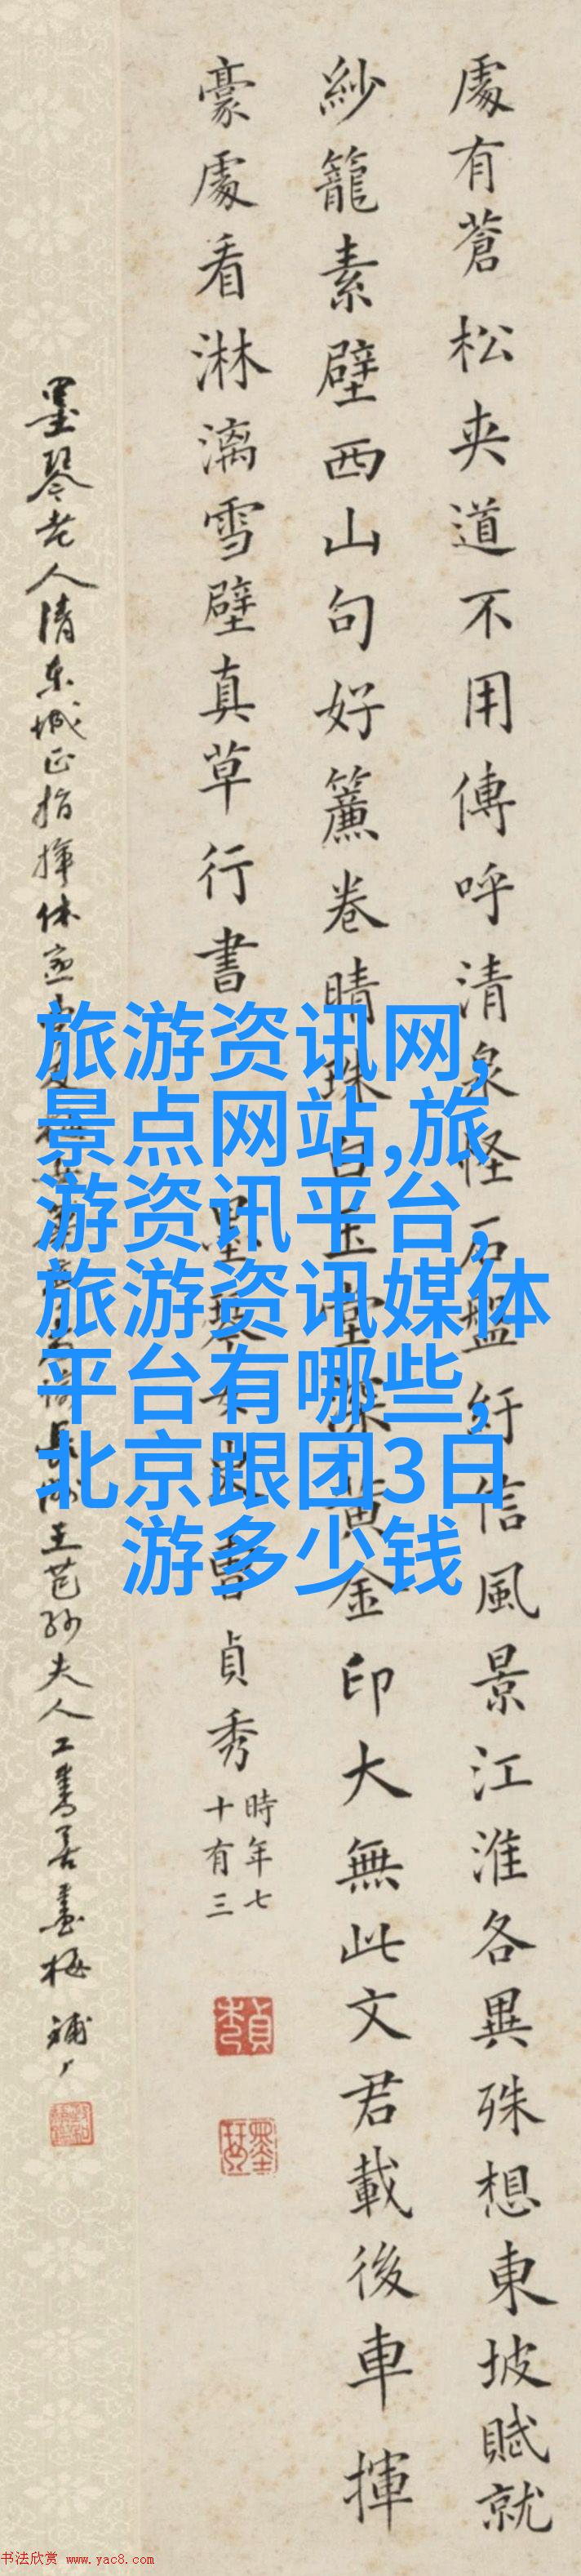 處有蒼松夾道不用傳呼清泉怪石盤紆信風景江淮各異殊想東坡賦就
紗籠素壁西山句好簾卷晴珠白玉堂深黃金印大無此文君載後車揮
豪處看淋漓雪壁真草行書
墨琴女史曹貞秀
時年七
十有三
墨琴老人清東城正指揮
王芑孫夫人工書善畫梅
旅游资讯网,
景点网站,旅
游资讯平台,
旅游资讯媒体
平台有哪些,
北京跟团3日
游多少钱
书法欣赏 www.yac8.com